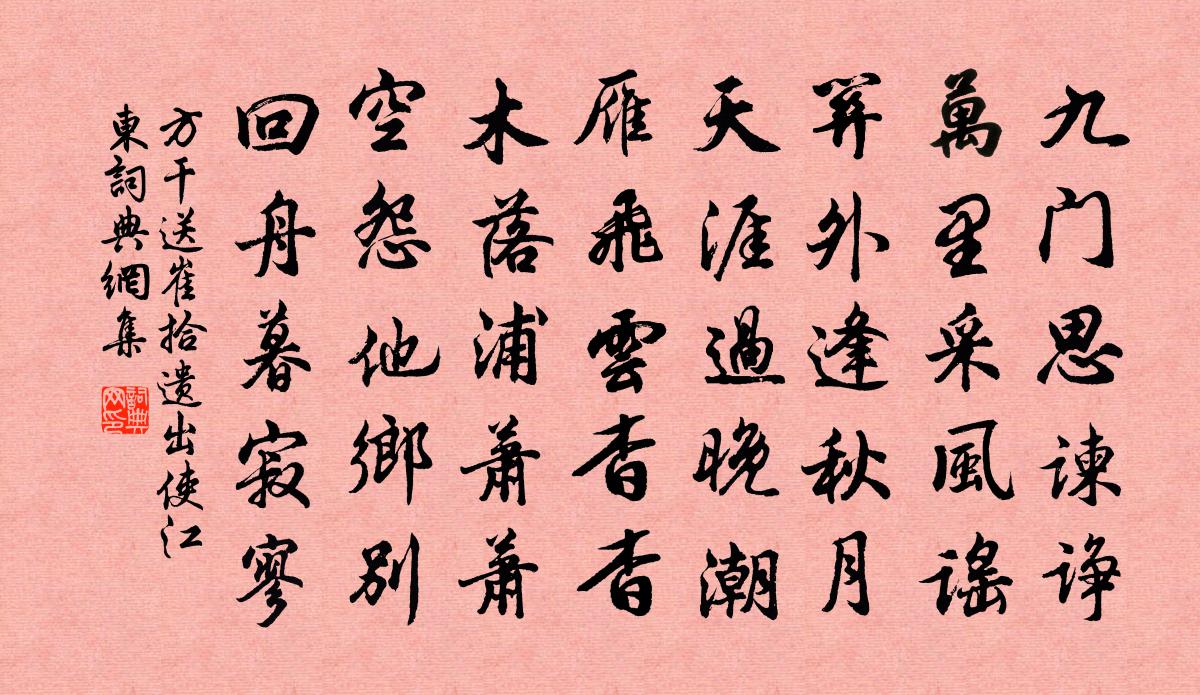 九门思谏诤
萬里采風謠
關外逢秋月
天涯過晚潮
雁飛雲杳杳
木落浦蕭蕭
空怨他鄉別
回舟暮寂寥
方干送崔拾遺出使江
東詞典網集
詞典网印